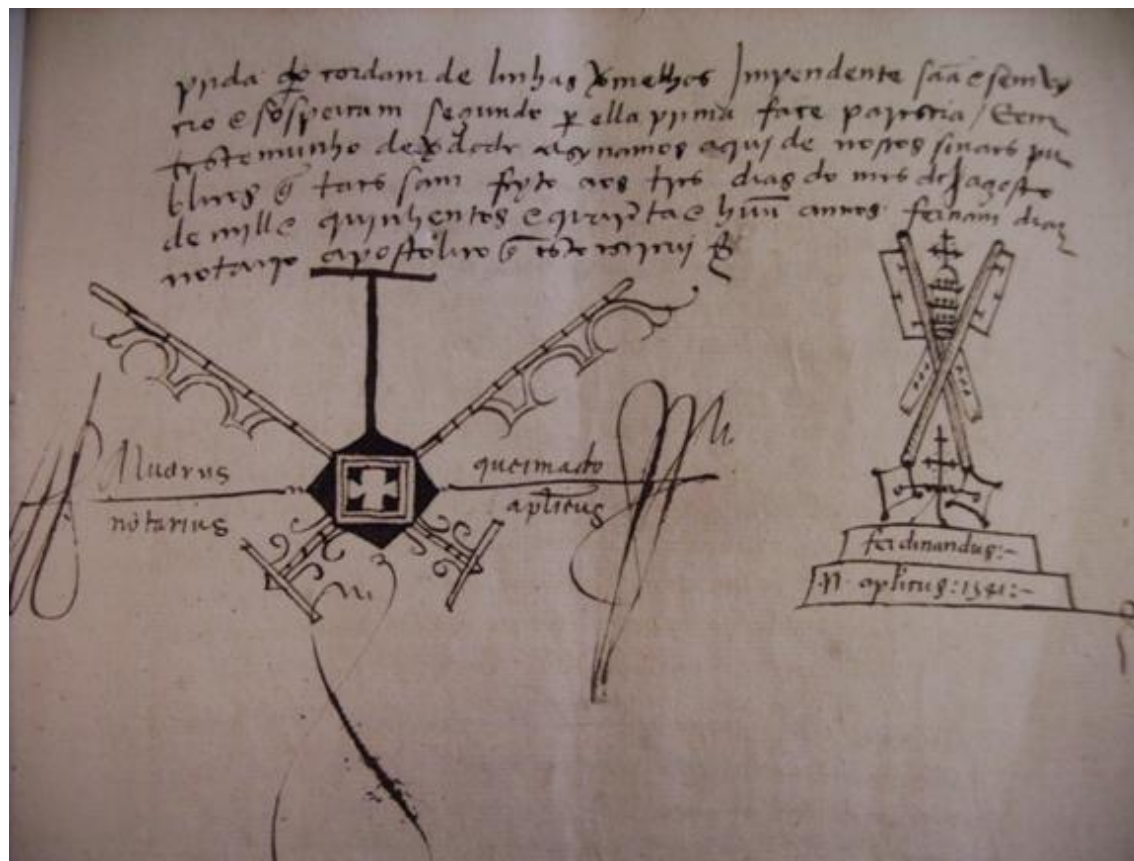 de cordam de linhas vermelhas Impendente sãa e sem vy
cio e sospeitam segundo p ella prima face parescia / E em
testemunho de verdade asynamos aqui de nossos sinaes pu
blicos q̃ taes sam feyto aos tres dias do mes de agosto
de mill e quinhentos e quarẽta e hũu annos fernam diaz
notario apostolico q̃ este escrivi
Aluarus
queimado
notarius
aplicus
ferdinandus:~
.N. aplicus: 1541:~